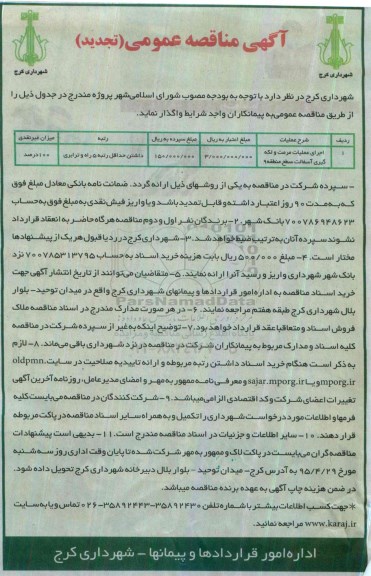 آگهی مناقصه عمومی (تجدید)
شهرداری کرج
شهرداری کرج
شهرداری کرج در نظر دارد با توجه به بودجه مصوب شورای اسلامی‌شهر پروژه مندرج در جدول ذیل را
از طریق مناقصه عمومی‌به پیمانکاران واجد شرایط واگذار نماید.
ردیف شرح عملیات مبلغ اعتبار به ریال مبلغ سپرده به ریال رتبه میزان غیرنقدی
۱ اجرای عملیات مرمت و لکه گیری آسفالت سطح منطقه۹ ۳/۰۰۰/۰۰۰/۰۰۰ ۱۵۰/۰۰۰/۰۰۰ داشتن حداقل رتبه ۵ راه و ترابری ۱۰۰درصد
- سپرده شرکت در مناقصه به یکی از روشهای ذیل ارائه گردد. ضمانت نامه بانکی معادل مبلغ فوق
که به‌مدت ۹۰ روز اعتبار داشته و قابل تمدید باشد و یا واریز فیش نقدی به مبلغ فوق به حساب
۷۰۰۷۸۶۹۴۸۶۲۳ بانک شهر. ۲- برندگان نفر اول و دوم مناقصه هرگاه حاضر به انعقاد قرارداد
نشوند سپرده آنان به‌ترتیب ضبط خواهد شد. ۳- شهرداری کرج در رد یا قبول هر یک از پیشنهادها
مختار است. ۴- مبلغ ۵۰۰/۰۰۰ ریال بابت هزینه خرید اسناد به حساب ۷۰۰۷۸۵۳۱۳۷۹۵ نزد
بانک شهر شهرداری واریز و رسید آنرا ارائه نمایند. ۵- متقاضیان می‌توانند از تاریخ انتشار آگهی جهت
خرید اسناد مناقصه به اداره امور قراردادها و پیمانهای شهرداری کرج واقع در میدان توحید- بلوار
بلال شهرداری کرج طبقه هفتم مراجعه نمایند. ۶- در هر صورت مدارک مندرج در اسناد مناقصه ملاک
فروش اسناد و متعاقبا عقد قرارداد خواهد بود. ۷- توضیح اینکه به غیر از سپرده شرکت در مناقصه
کلیه اسناد و مدارک مربوط به پیمانکاران شرکت در مناقصه در نزد شهرداری باقی می‌ماند. ۸- لازم
به ذکر است هنگام خرید اسناد داشتن رتبه مربوطه و ارائه تاییدیه صلاحیت در سایت .oldpmn
mporg.ir و یا sajar.mporg.ir و معرفی نامه ممهور به مهر و امضای مدیرعامل، روزنامه آخرین آگهی
تغییرات اعضای شرکت و کد اقتصادی الزامی‌میباشد. ۹- شرکت کنندگان در مناقصه می‌بایست کلیه
فرمها و اطلاعات مورد درخواست شهرداری را تکمیل و به همراه سایر اسناد مناقصه در پاکت مربوطه
قرار دهند. ۱۰- سایر اطلاعات و جزئیات در اسناد مناقصه مندرج است. ۱۱- بدیهی است پیشنهادات
مناقصه گران می‌بایست در پاکت لاک و ممهور به مهر شرکت شده تا پایان وقت اداری روز سه شنبه
مورخ ۹۵/۴/۲۹ به آدرس کرج- میدان توحید - بلوار بلال دبیرخانه شهرداری کرج تحویل داده شود.
در ضمن هزینه چاپ آگهی به عهده برنده مناقصه میباشد.
* جهت کسب اطلاعات بیشتر با شماره تلفن ۳۵۸۹۲۴۳۰-۳۵۸۹۲۴۴۳-۰۲۶ تماس و یا به سایت
www.karaj.ir مراجعه نمائید.
اداره امور قراردادها و پیمانها - شهرداری کرج
ParsNamadData